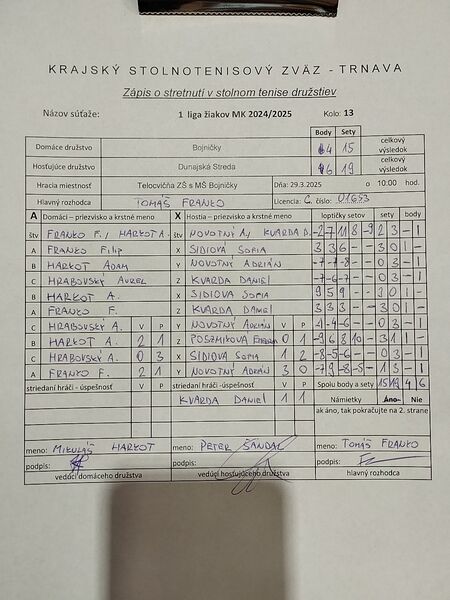 KRAJSKÝ STOLNOTENISOVÝ ZVÄZ - TRNAVA
Zápis o stretnutí v stolnom tenise družstiev
Názov súťaže: 1 liga žiakov MK 2024/2025 Kolo: 13
Body Sety
Domáce družstvo Bojničky 4 15 celkový výsledok
Hosťujúce družstvo Dunajská Streda 6 19 celkový výsledok
Hracia miestnosť Telocvičňa ZŠ s MŠ Bojničky Dňa: 29.3.2025 o 10:00 hod.
Hlavný rozhodca TOMÁŠ FRANKO Licencia C, číslo: 01653
A Domáci – priezvisko a krstné meno X Hostia – priezvisko a krstné meno loptičky setov sety body
štv FRANKO F., HARKOT A. štv NOVOTNÝ A., KVARDA D. -2 7 11 8 -9 2 3 - 1
A FRANKO Filip X SIDIOVÁ SOFIA 3 3 6 - - 3 0 1 -
B HARKOT ADAM Y NOVOTNÝ ADRIÁN -7 -7 -8 - - 0 3 - 1
C HRABOVSKÝ AUREL Z KVARDA DANIEL -7 -6 -7 - - 0 3 - 1
B HARKOT A. X SIDIOVA SOFIA 9 5 9 - - 3 0 1 -
A FRANKO F. Z KVARDA DANIEL 3 3 3 - - 3 0 1 -
C HRABOVSKÝ A. V P Y NOVOTNÝ ADRIÁN V P -4 -4 -6 - - 0 3 - 1
B HARKOT A. 2 1 Z POSZMIKOVÁ 0 1 -9 6 8 10 - 3 1 1 -
C HRABOVSKÝ A. 0 3 X SIDIOVÁ SOFIA 1 2 -8 -5 -6 - - 0 3 - 1
A FRANKO F. 2 1 Y NOVOTNÝ ADRIÁN 3 0 -7 9 -8 -5 - 1 3 - 1
striedaní hráči - úspešnosť V P striedaní hráči - úspešnosť V P Spolu body a sety 15 19 4 6
KVARDA DANIEL 1 1 Námietky Áno- Nie
ak áno, tak pokračujte na 2. strane
meno: MIKULÁŠ HARKOT meno: PETER ŠANDAL meno: TOMÁŠ FRANKO
podpis: podpis: podpis:
vedúci domáceho družstva vedúci hosťujúceho družstva hlavný rozhodca